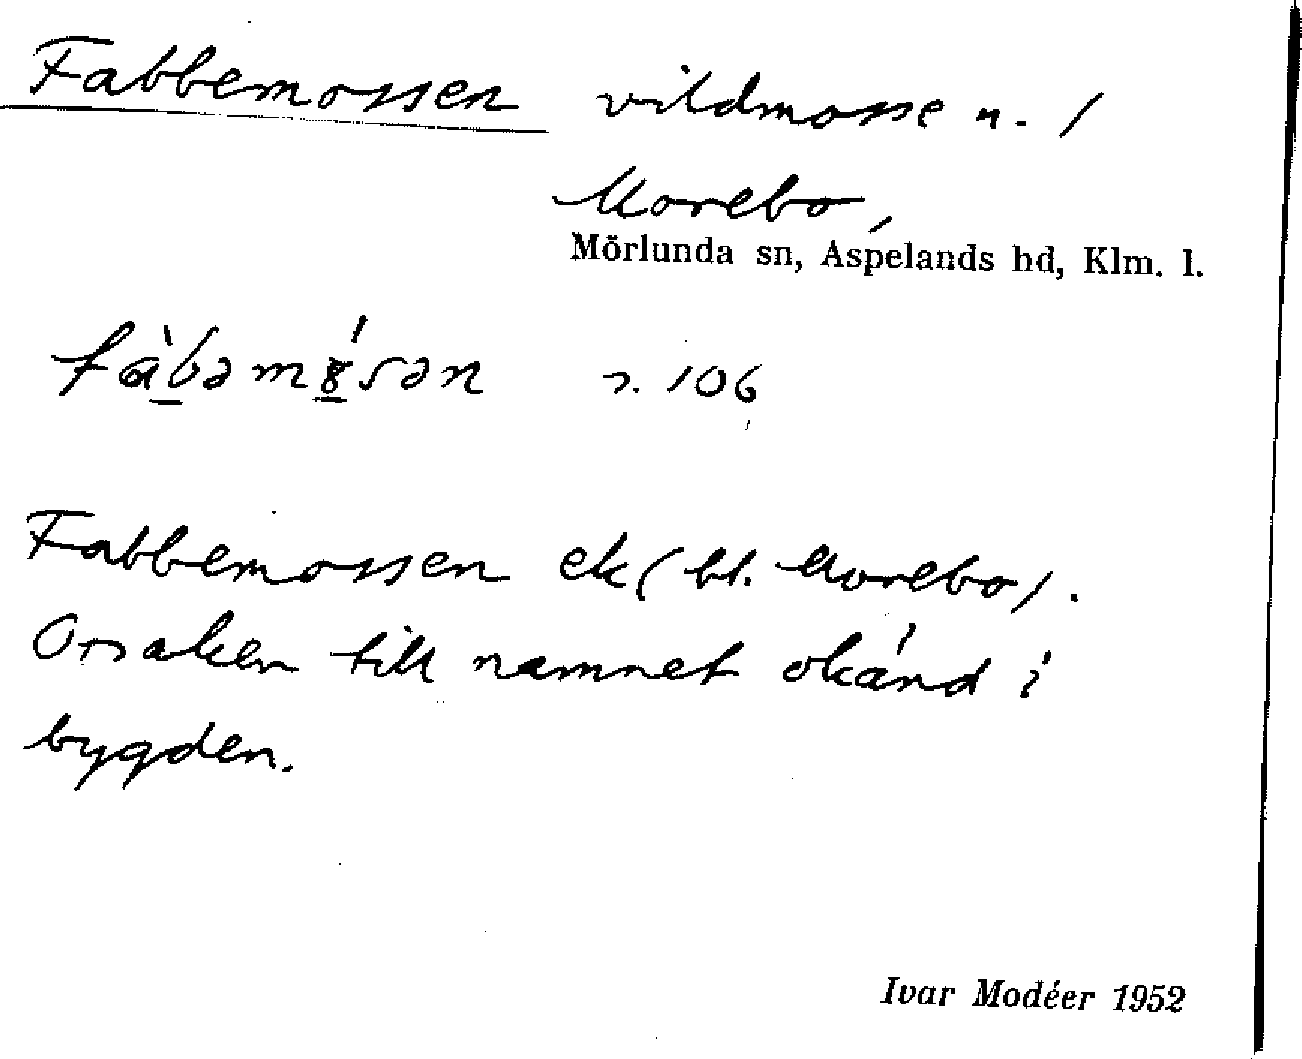 Fabbemossen vildmosse n. /
Morebo,
Mörlunda sn, Aspelands hd, Klm. l.
fàbəmósən n. 106
Fabbemossen ek (bl. Morebo).
Orsaken till namnet okänd i
bygden.
Ivar Modéer 1952